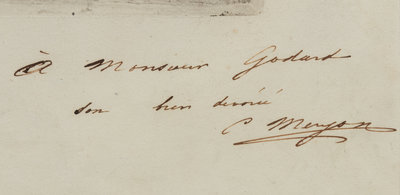 à Monsieur Godard
son bien dévoué
C Meryon